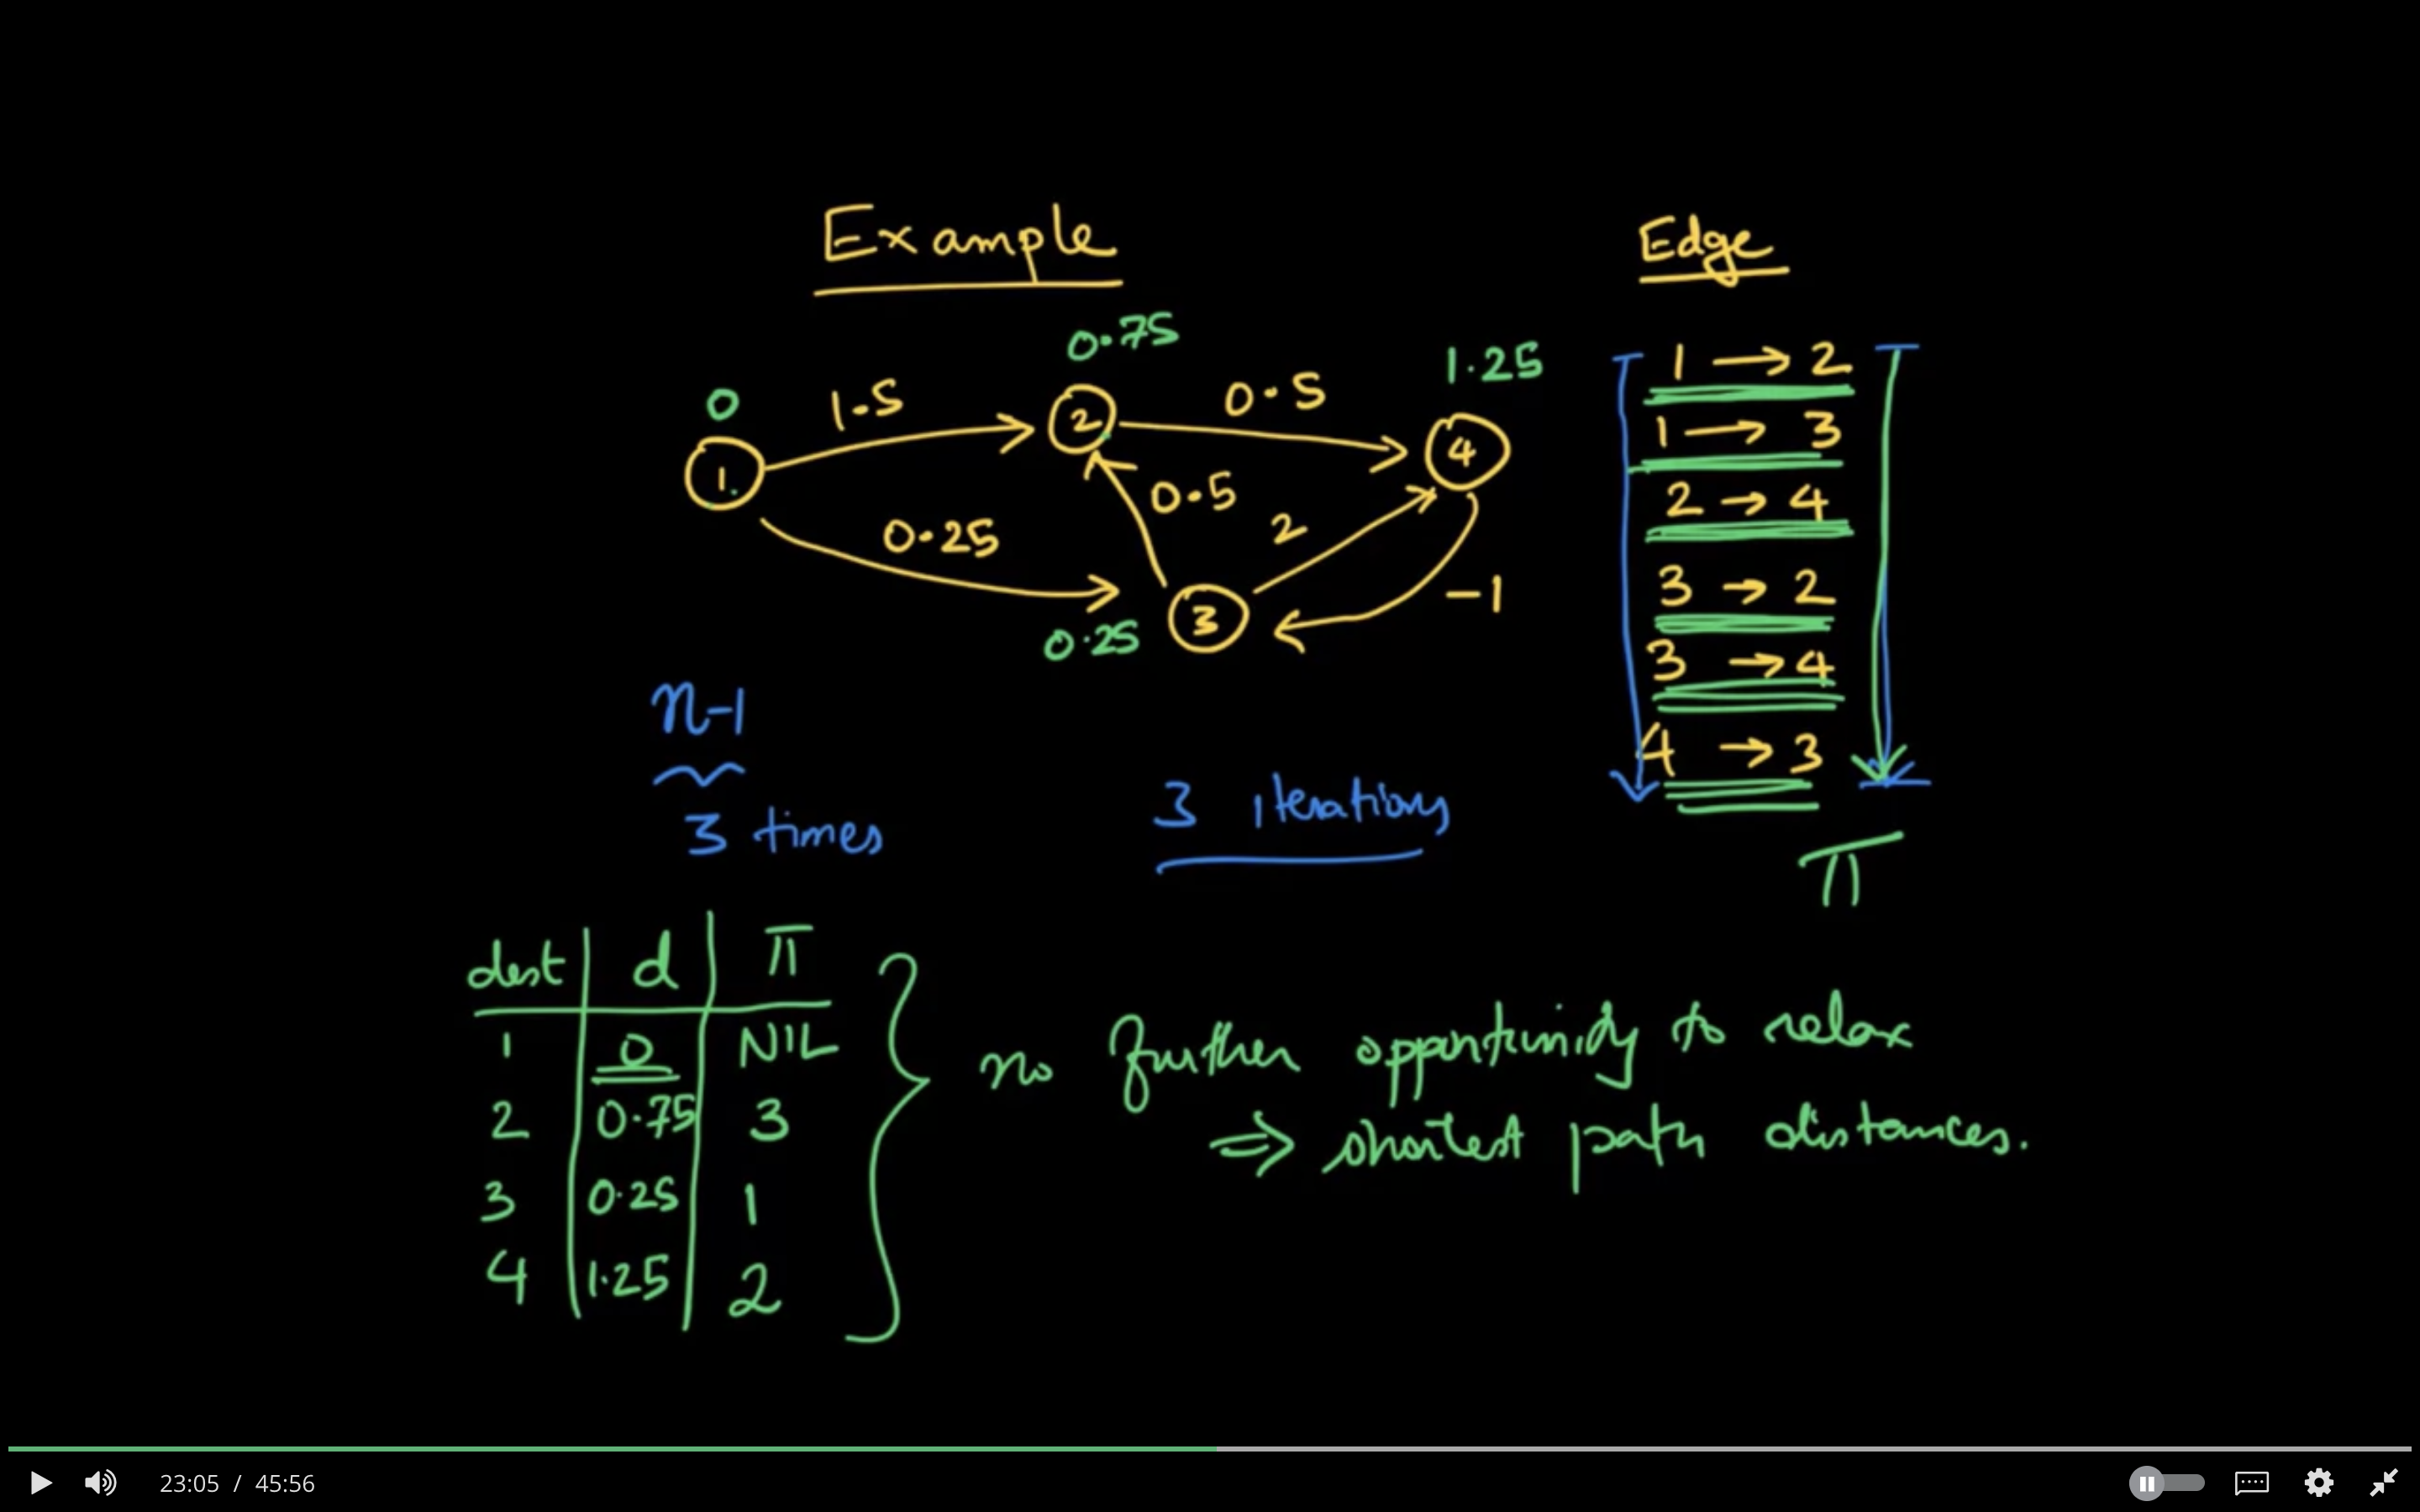 Example
Edge
0
1.5
0.75
0.5
1.25
1
2
4
0.25
0.5
2
-1
3
0.25
1 → 2
1 → 3
2 → 4
3 → 2
3 → 4
4 → 3
π
n-1
3 times
3 iterations
dest d π
1 0 NIL
2 0.75 3
3 0.25 1
4 1.25 2
no further opportunity to relax
⇒ shortest path distances.
23:05 / 45:56